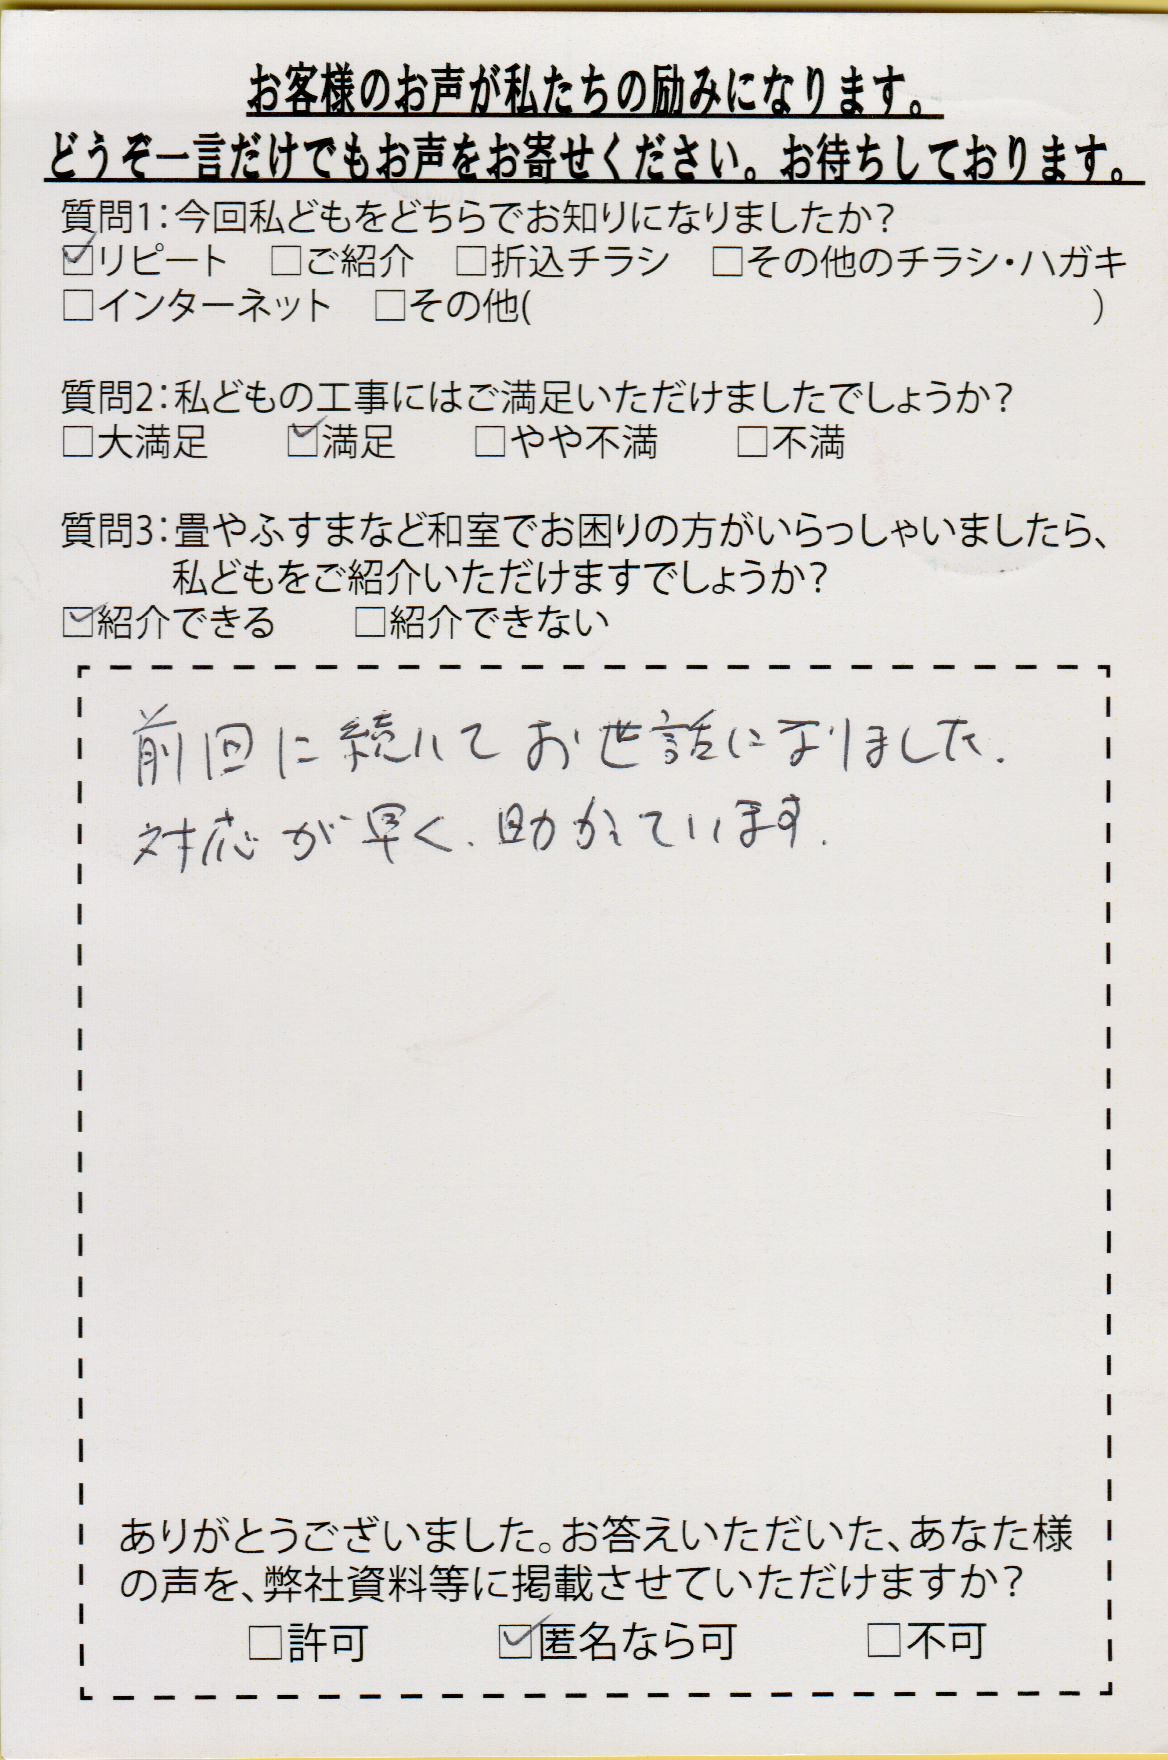 お客様のお声が私たちの励みになります。
どうぞ一言だけでもお声をお寄せください。お待ちしております。
質問1:今回私どもをどちらでお知りになりましたか?
☑リピート □ご紹介 □折込チラシ □その他のチラシ・ハガキ
□インターネット □その他( )
質問2:私どもの工事にはご満足いただけましたでしょうか?
□大満足 ☑満足 □やや不満 □不満
質問3:畳やふすまなど和室でお困りの方がいらっしゃいましたら、
私どもをご紹介いただけますでしょうか?
☑紹介できる □紹介できない
前回に続いてお世話になりました.
対応が早く、助かっています.
ありがとうございました。お答えいただいた、あなた様
の声を、弊社資料等に掲載させていただけますか?
□許可 ☑匿名なら可 □不可